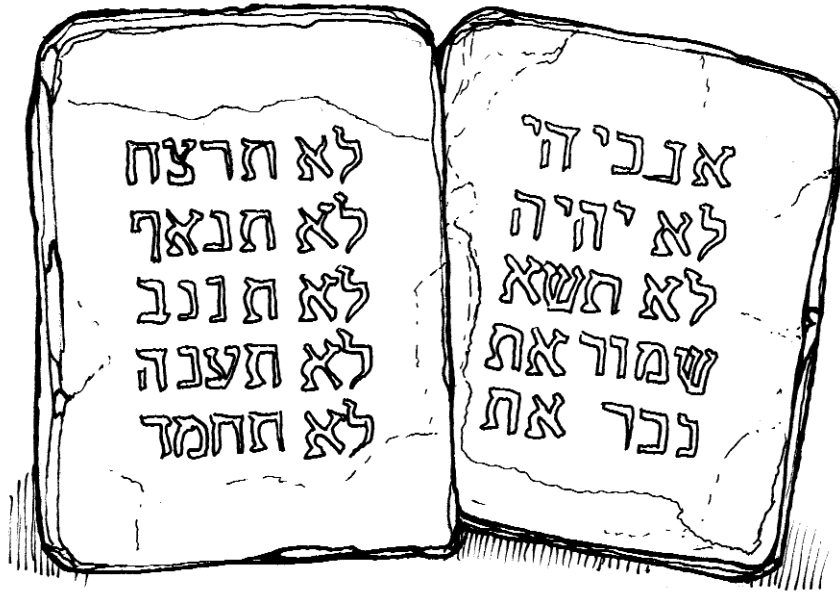 אנכי ה'
לא יהיה
לא תשא
שמור את
נכר את
לא תרצח
לא תנאף
לא תגנב
לא תענה
לא תחמד